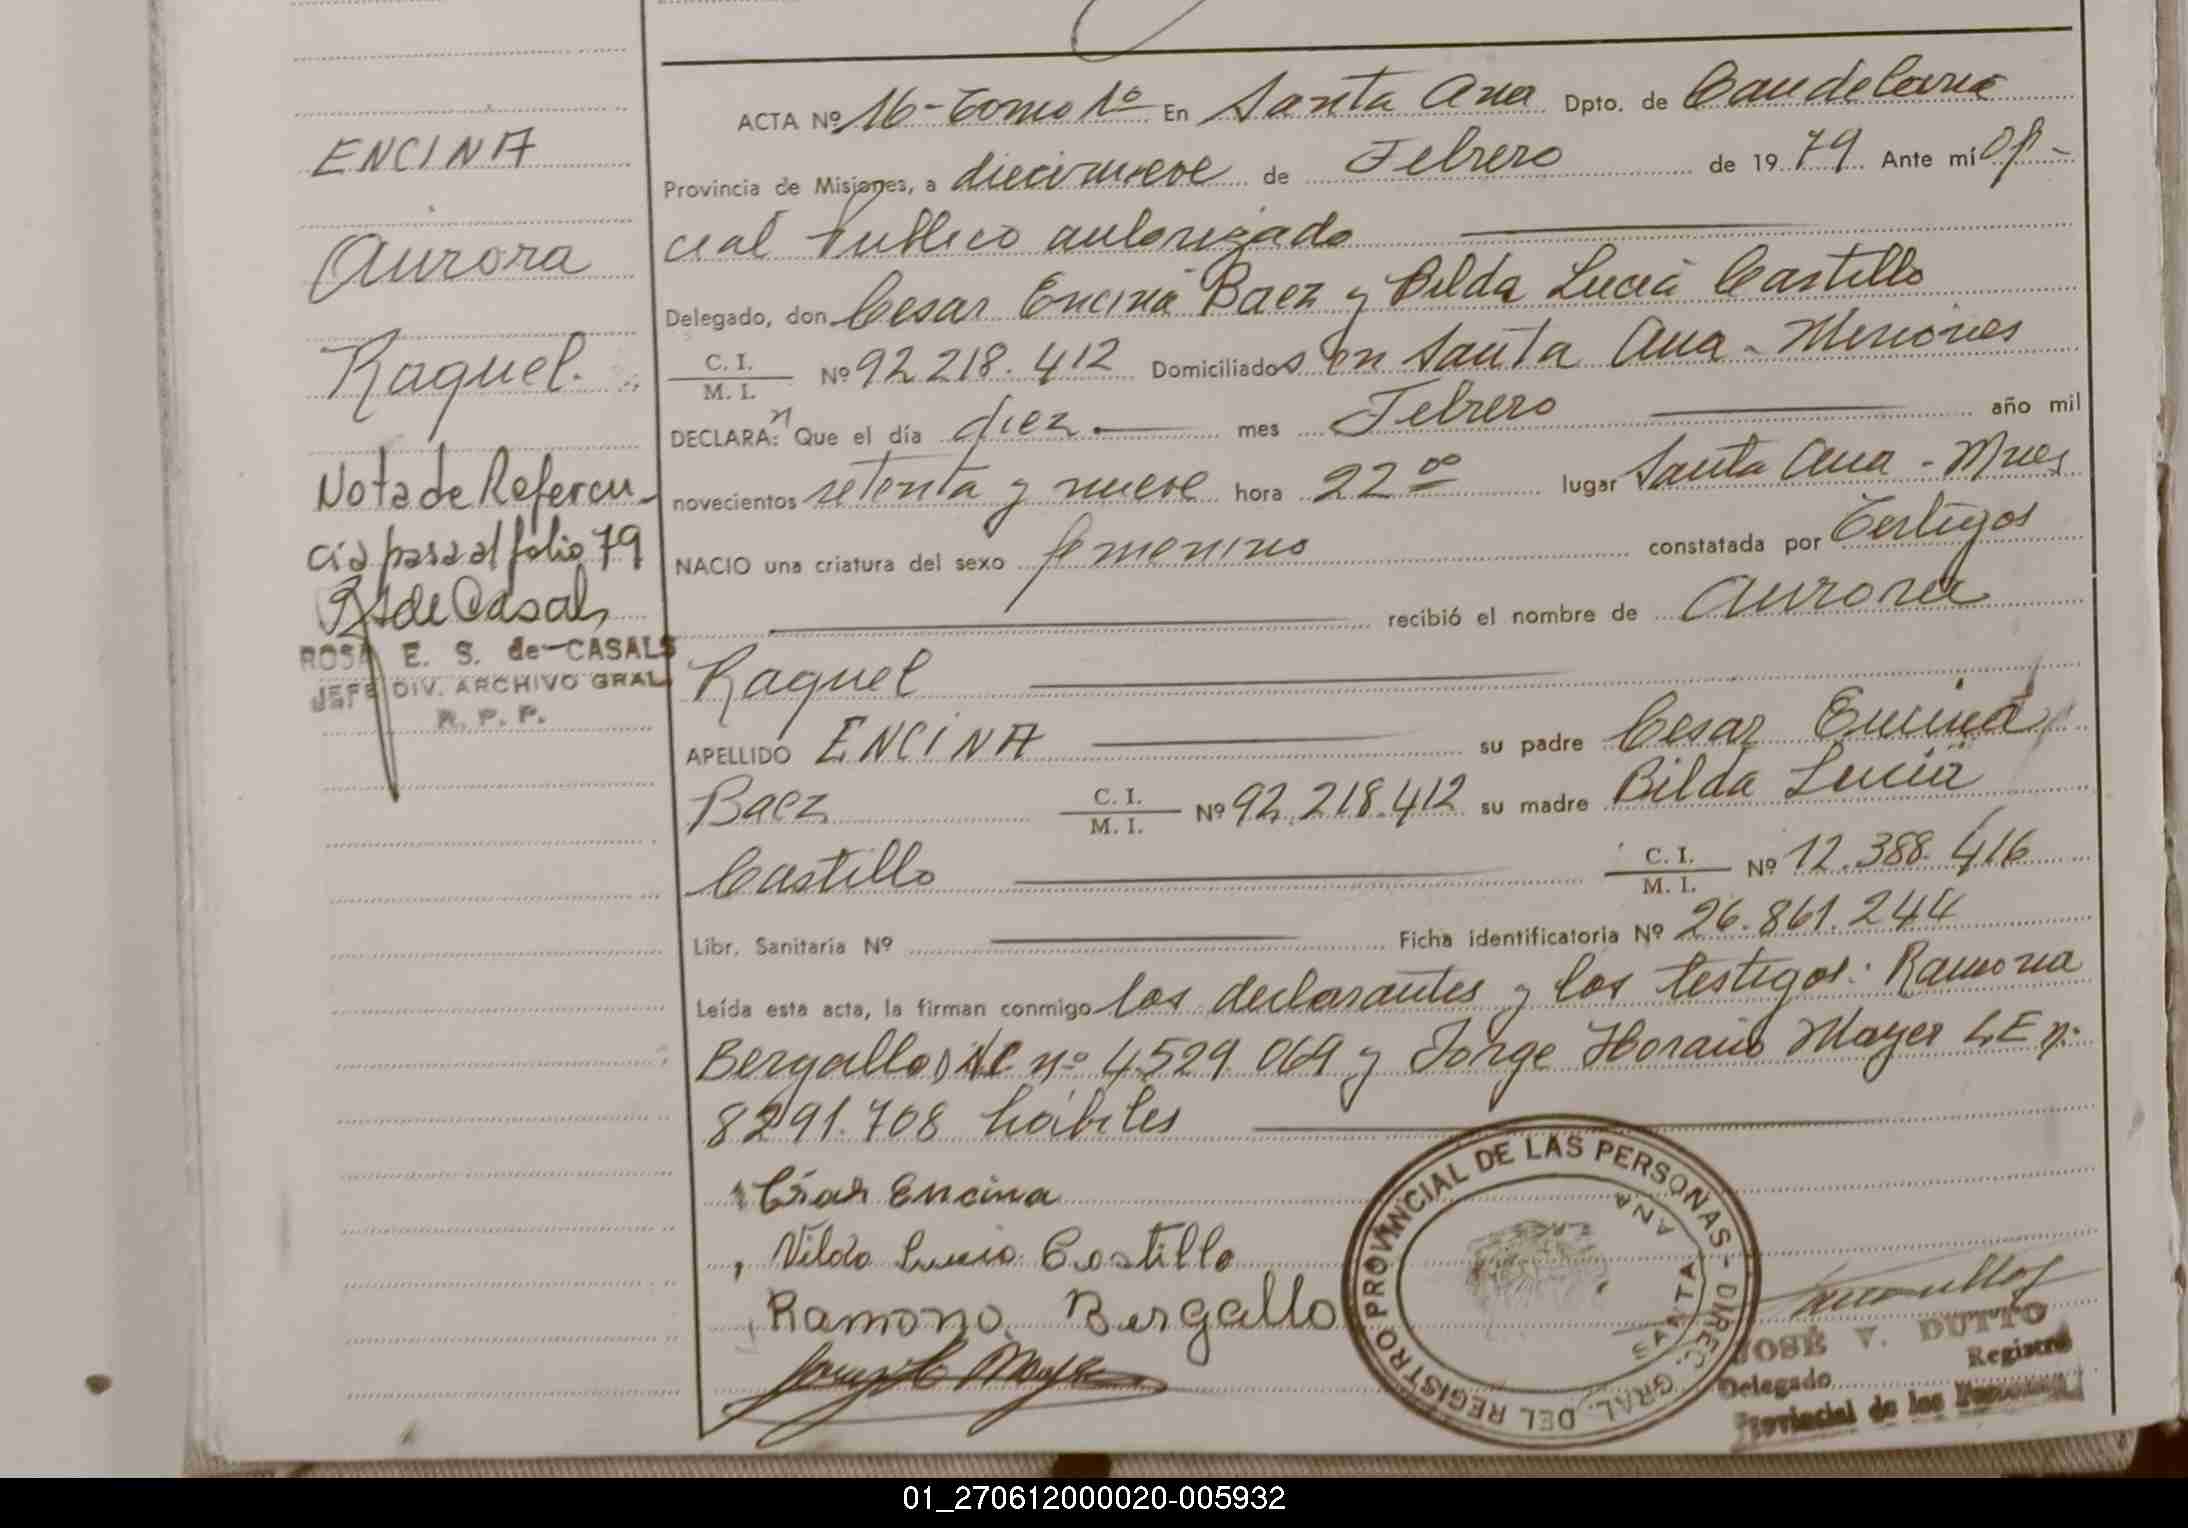 ENCINA
Aurora
Raquel.
Nota de Referen-
cia pasa al folio 79
RSde Casals
ROSA E. S. de CASALS
JEFE DIV. ARCHIVO GRAL.
R. P. P.
ACTA Nº 16- Tomo 1º En Santa Ana Dpto. de Candelaria
Provincia de Misiones, a diecinueve de Febrero de 1979 Ante mí Ofi-
cial Publico autorizado
Delegado, don Cesar Encina Baez y Bilda Lucia Castillo
C. I. / M. I. Nº 92.218.412 Domiciliados en Santa Ana - Misiones
DECLARA:n Que el día diez. mes Febrero año mil
novecientos setenta y nueve hora 22 00 lugar Santa Ana - Mnes
NACIO una criatura del sexo femenino constatada por Testigos
recibió el nombre de Aurora
Raquel
APELLIDO ENCINA su padre Cesar Encina
Baez C. I. / M. I. Nº 92.218.412 su madre Bilda Lucia
Castillo C. I. / M. I. Nº 12.388.416
Libr. Sanitaria Nº Ficha identificatoria Nº 26.861.244
Leída esta acta, la firman conmigo los declarantes y los testigos: Ramona
Bergallo nº 4.529.069 y Jorge Horacio Mayer L E nº
8291.708 hábiles
César Encina
Vilda Lucia Castillo
Ramona Bergallo
DIREC. GRAL. DEL REGISTRO PROVINCIAL DE LAS PERSONAS -
SANTA ANA
JOSÉ V. DUTTO
Delegado Registro
Provincial de las Personas
01_270612000020-005932